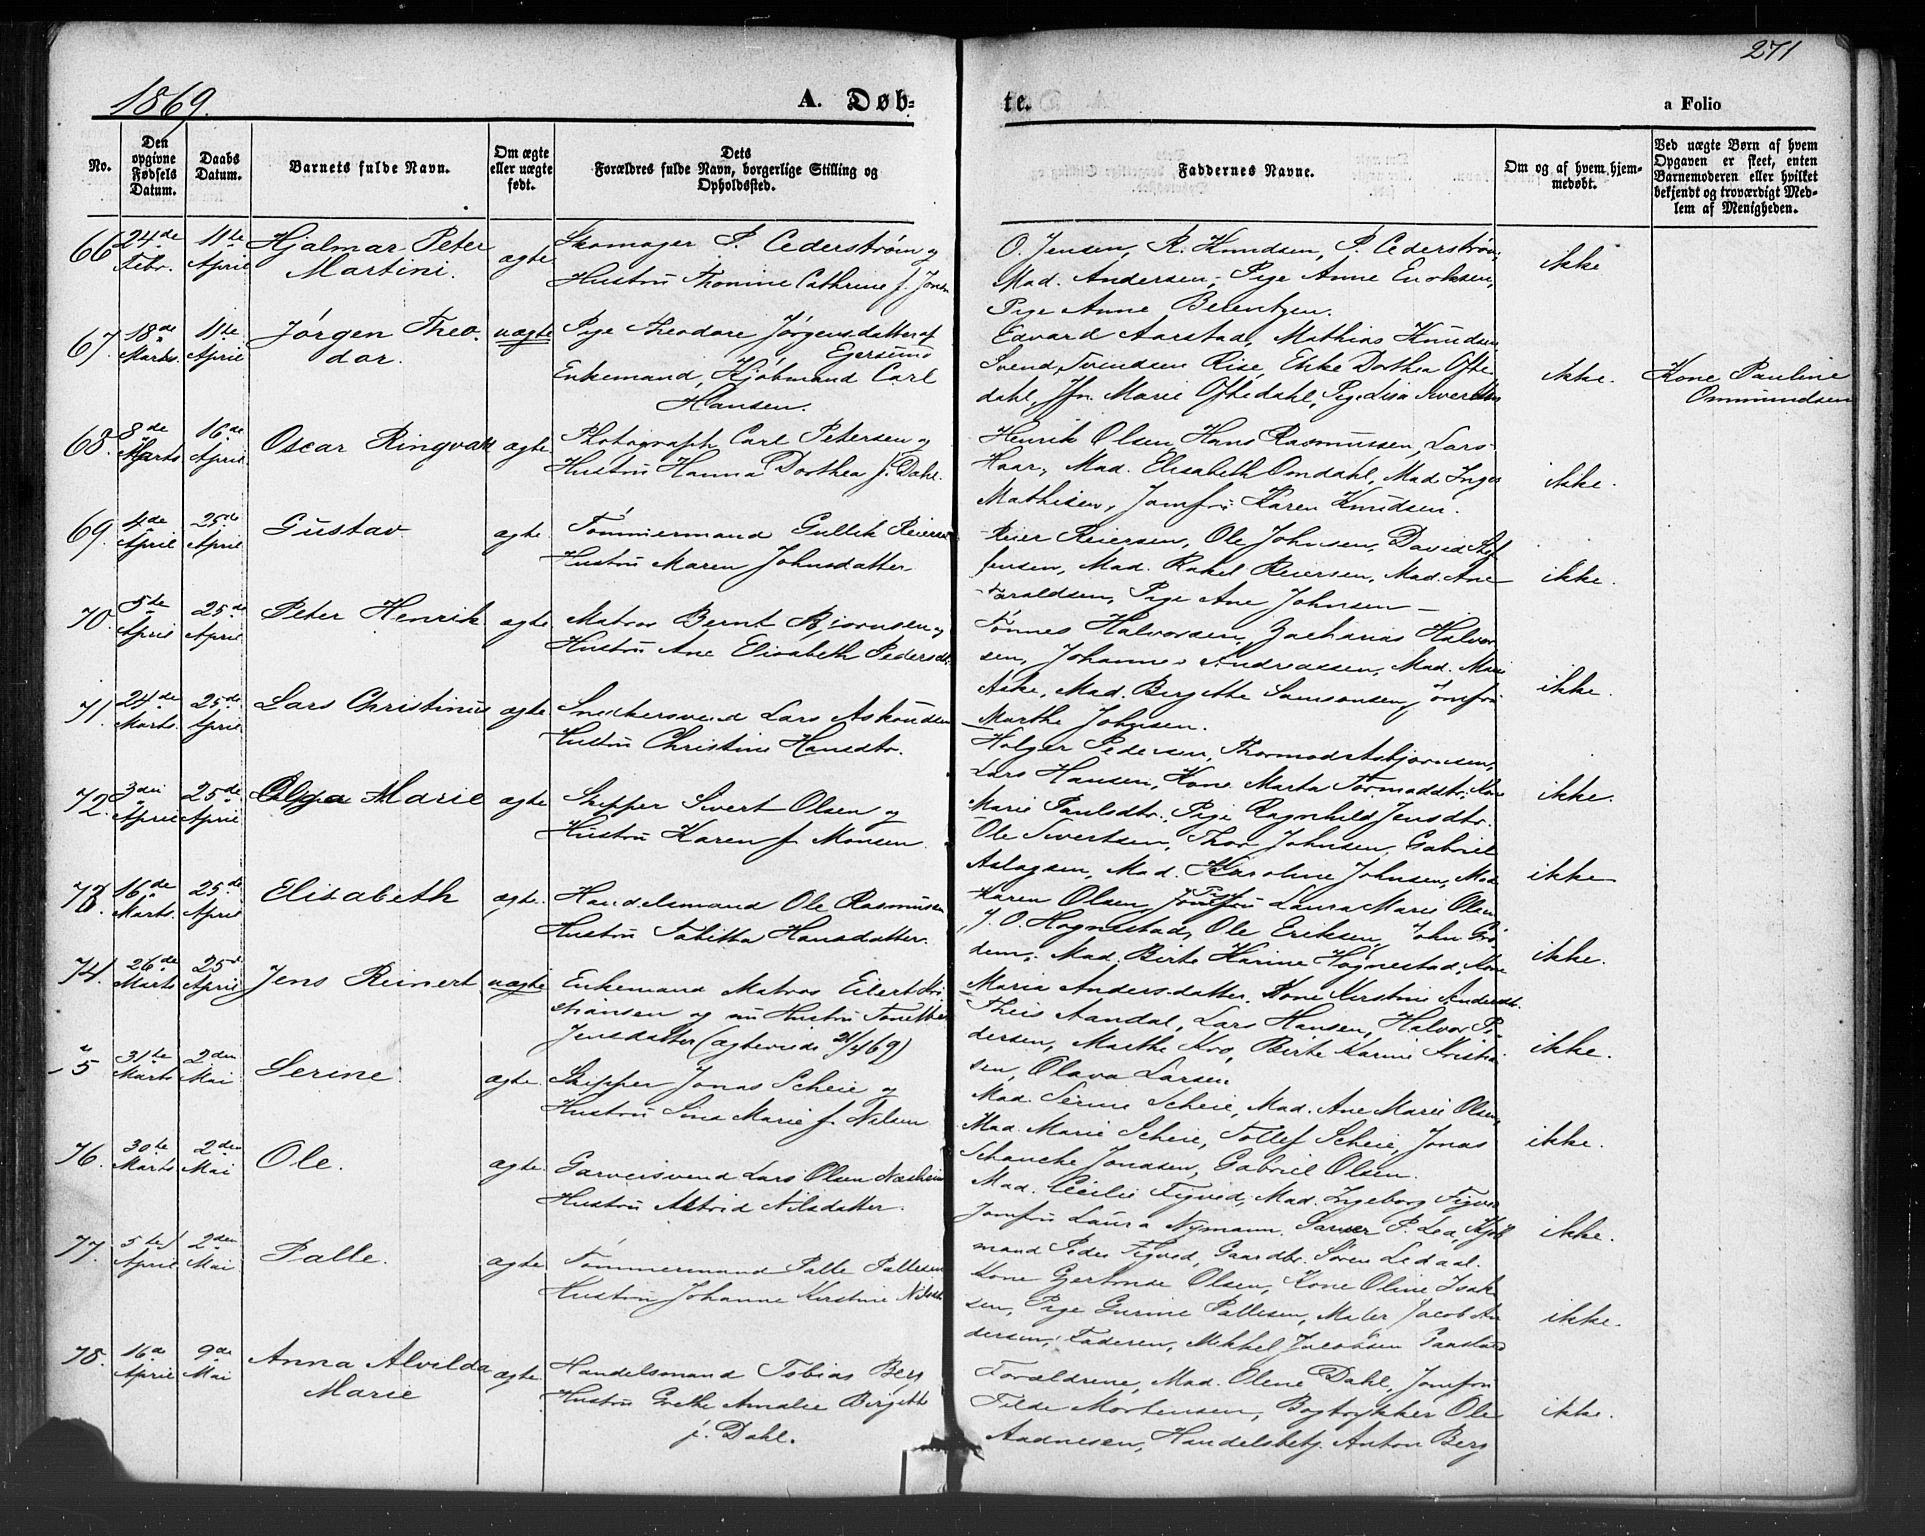 271
1869.
A. Døb-
te.
a Folio
No.
Den opgivne Fødsels Datum.
Daabs Datum.
Barnets fulde Navn.
Om ægte eller uægte født.
Dets Forældres fulde Navn, borgerlige Stilling og Opholdssted.
Faddernes Navne.
Om og af hvem hjemmedøbt.
Ved uægte Børn af hvem Opgaven er skeet, enten Barnemoderen eller hvilket bekjendt og troværdigt Medlem af Menigheden.
66 24de Febr. 11te April Hjalmar Peter Martini. ægte Skomager P. Cederstrøm og
Hustru Thomine Cathrine f. Jensen
O. Jensen, R. Knudsen, P. Cederstrøm,
Mad. Andersen, Pige Anne Enoksen,
Pige Anne Berentzen.
ikke
67. 18de Marts. 11te April Jørgen Theodor. uægte Pige Theodore Jørgensdatter af
Egersund
Enkemand, Kjøbmand Carl
Hansen.
Edvard Aarstad, Mathias Knudsen,
Svend Svendsen Rise, Enke Dorthea Ofte
dahl, Jfr. Marie Oftedahl, Pige Lisa Sivertsen
ikke.
Kone Pauline
Ommundsen
68. 8de Marts 16de April Oscar Ringvald ægte Photograph Carl Petersen og
Hustru Hanna Dorthea f. Dahl.
Henrik Olsen, Hans Rasmussen, Lars
Haar, Mad. Elisabeth Omdahl, Mad. Inger
Mathisen, Jomfru Karen Knudsen.
ikke.
69. 4de April 25de April Gustav ægte Tømmermand Gullik Reiersen
Hustru Maren Johnsdatter
Reier Reiersen, Ole Johnsen, David Stef
fensen, Mad. Rakel Reiersen, Mad. Ane
Taraldsen, Pige Ane Johnsen
ikke.
70. 5te April 25de April Peter Henrik ægte Matros Bernt Bjørnsen og
Hustru Ane Elisabeth Pedersdtr.
Tønnes Halvorsen, Zacharias Halvor
sen, Johannes Andreassen, Mad. Marie
Aske, Mad. Bergitte Samsonsen, Jomfru
Marthe Johnsen.
ikke.
71. 24de Marts. 25de April Lars Christinus ægte Snedkersvend Lars Askoudsen
Hustru Christine Hansdtr.
Holger Pedersen, Thormod Asbjørnsen,
Lars Hansen, Kone Marta Tormodsdtr., Kone
Marie Paulsdtr., Pige Ragnhild Jensdtr.
ikke.
72. 3die April 25de April Olga Marie ægte Skipper Sivert Olsen og
Hustru Karen f. Monsen.
Ole Sivertsen, Thor Johnsen, Gabriel
Aslagsen, Mad. Karoline Johnsen, Mad.
Karen Olsen, Pige Laura Marie Olsen
ikke
73. 16de Marts. 25de April Elisabeth ægte. Handelsmand Ole Rasmussen
Hustru Tabitta Hansdatter.
J. O. Hognestad, Ole Eriksen, John Gro
dem, Mad. Birte Karine Hognestad, Kone
Maria Andersdatter. Kone Kirstine Andersdtr.
ikke.
74. 26de Marts 25de April Jens Reinert uægte Enkemand Matros Eilert Kri
stiansen og nu Hustru Tonette
Jensdatter (ægteviede 21/4 69)
Theis Aandal, Lars Hansen, Halvor Pe
dersen, Marthe Kro, Birte Karine Kristian
sen, Olava Larsen
ikke.
5 31te Marts 2den Mai Serine. ægte Skipper Jonas Scheie og
Hustru Sina Marie f. Nilsen
Mad. Serine Scheie, Mad. Ane Marie Olsen,
Mad. Marie Scheie, Tollef Scheie, Jonas
Schancke Jonassen, Gabriel Olsen.
ikke.
76. 30te Marts 2den Mai Ole. ægte. Garversvend Lars Olsen Næsheim
Hustru Astrid Nilsdatter.
Mad. Cecilie Figved, Mad. Ingeborg Figved
Jomfru Laura Nymann. P. Led, Kjøb
mand Peder Figved, Gaardbr. Søren Ledaal.
ikke.
77. 5te April 2den Mai Palle. ægte Tømmermand Palle Pallesen
Hustru Johanne Kirstine Nilsdtr.
Kone Gertrude Olsen, Kone Oline Isak
sen, Pige Gurine Pallesen, Maler Jacob An
dersen, Faderen, Mikkel Jacobsen Gaustad
ikke.
78. 16de April 9de Mai Anna Alvilda Marie ægte. Handelsmand Tobias Berg
Hustru Grethe Amalie Birgitte
f. Dahl.
Forældrene, Mad. Olene Dahl, Jomfru
Tilde Mortensen, Bogtrykker Ole
Aadnesen, Handelsbetj. Anton Berg
ikke.